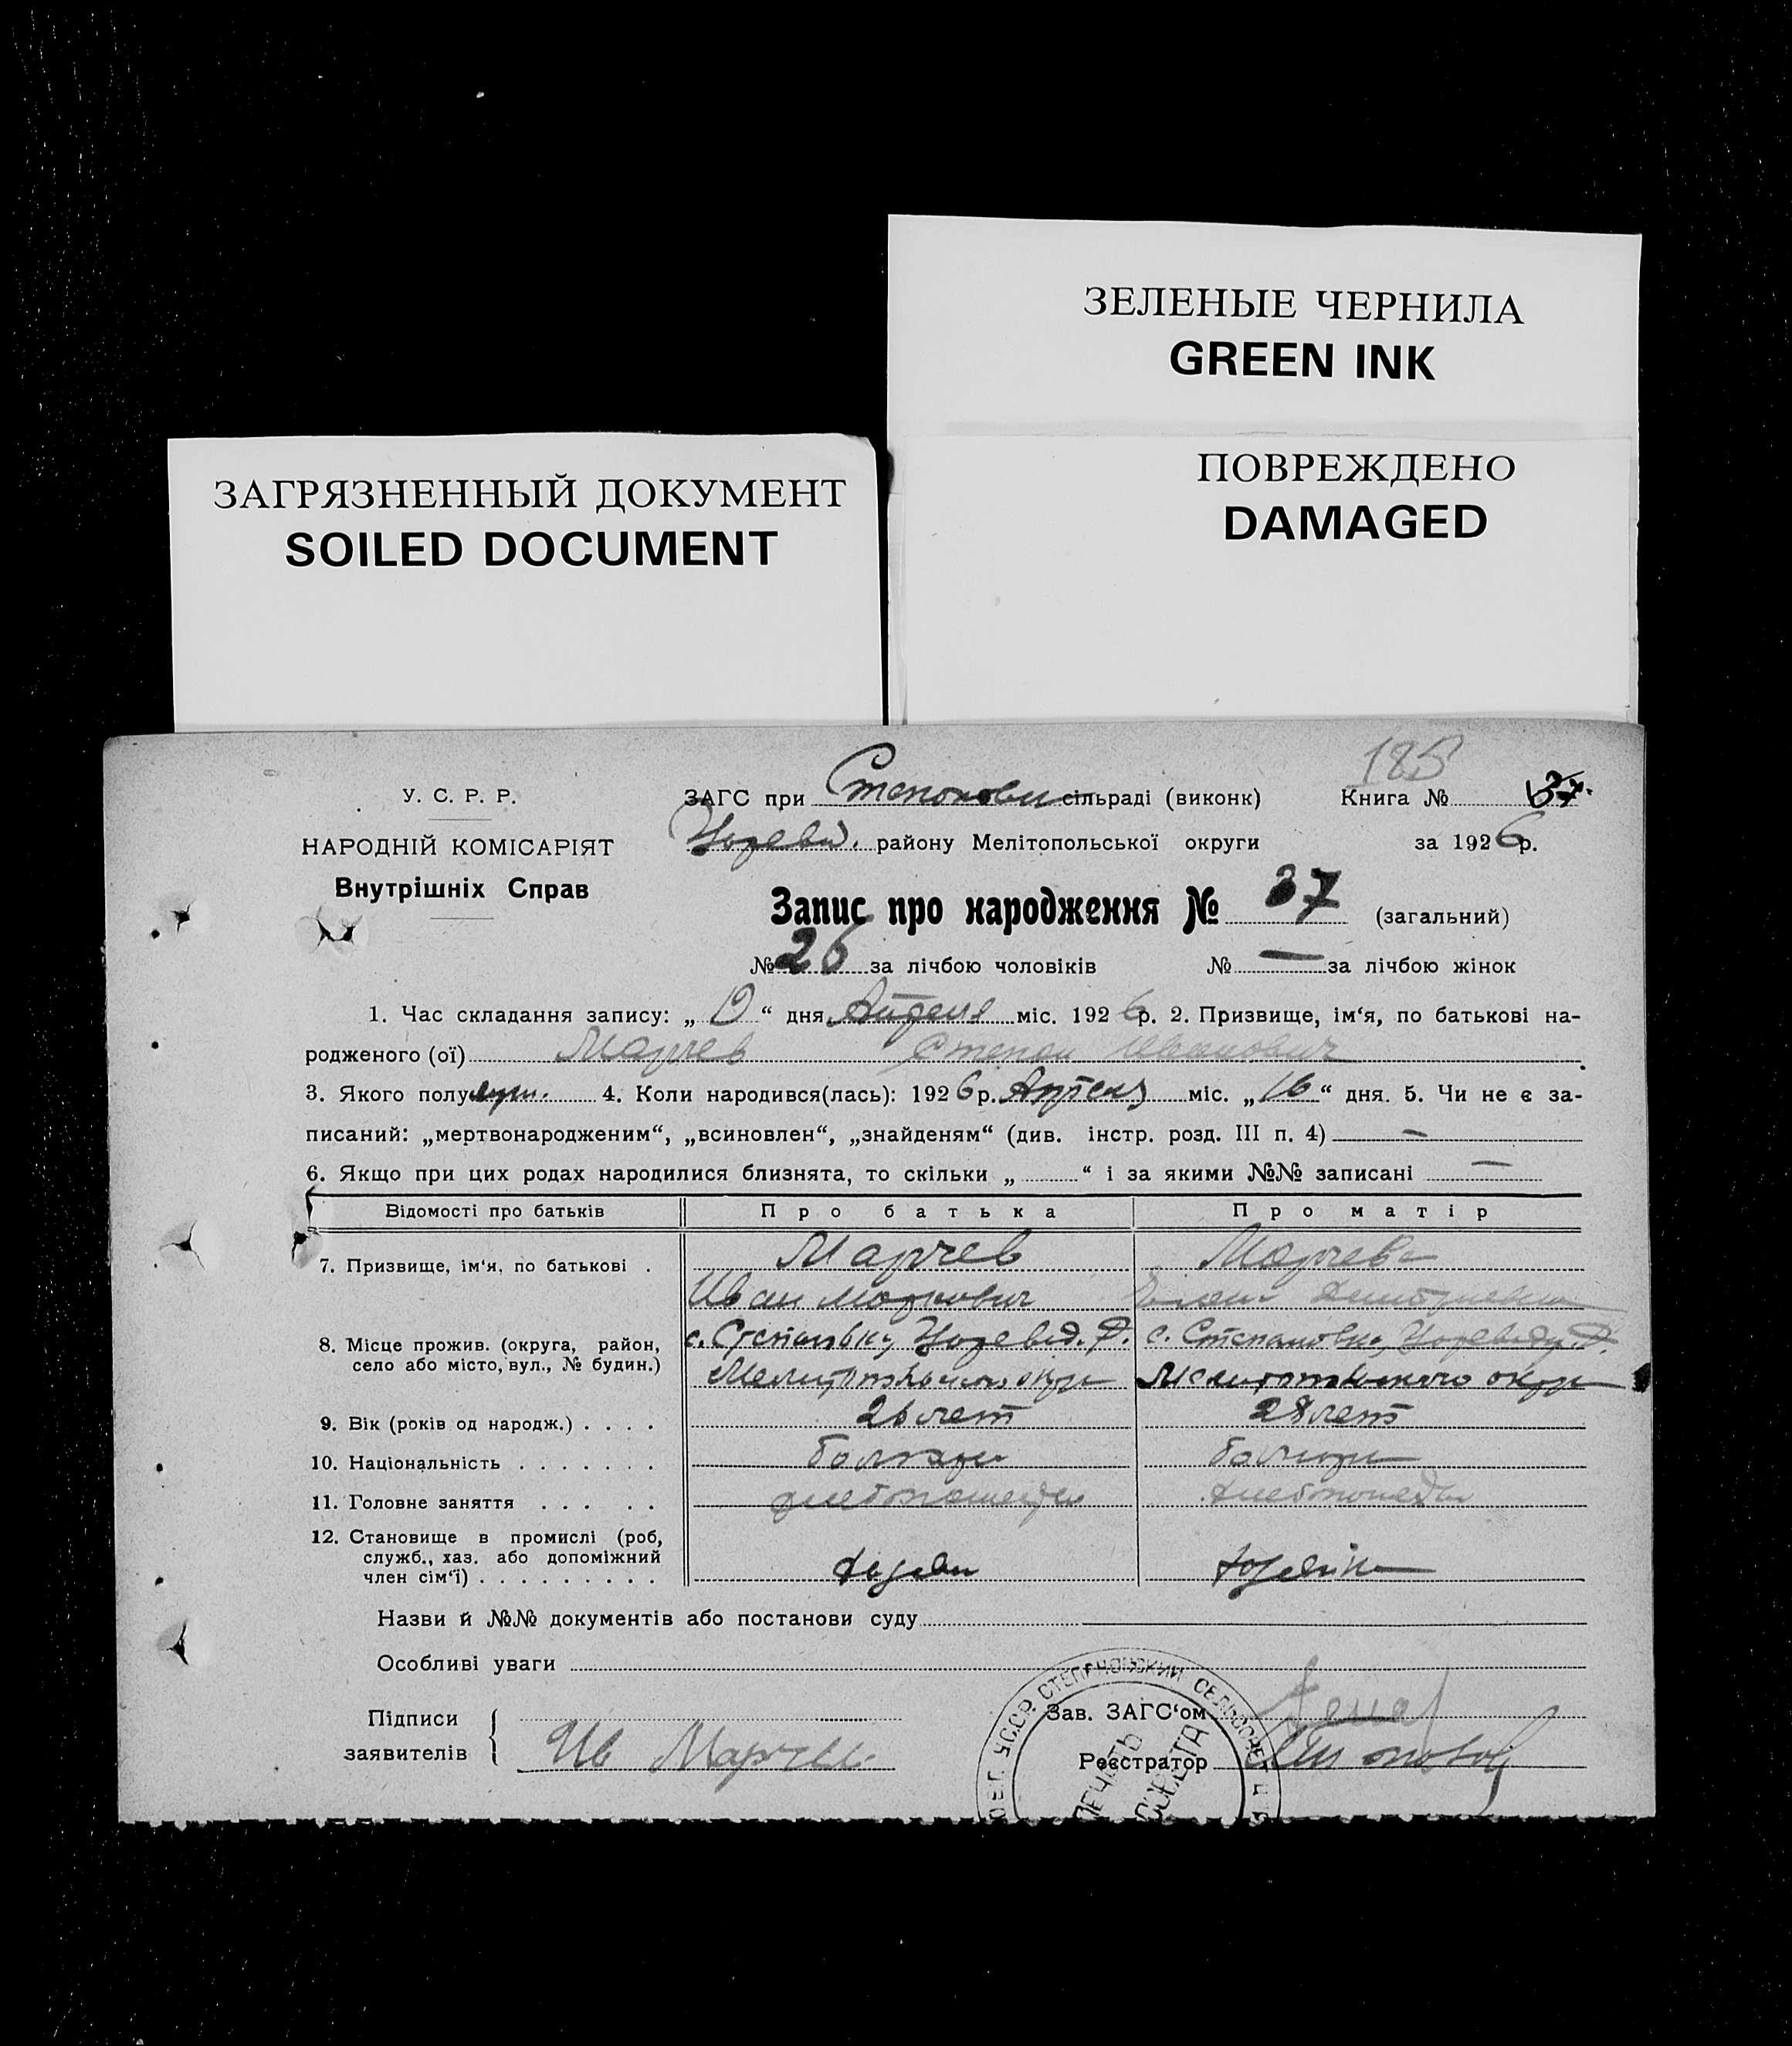 ЗЕЛЕНЫЕ ЧЕРНИЛА
GREEN INK
ПОВРЕЖДЕНО
DAMAGED
ЗАГРЯЗНЕННЫЙ ДОКУМЕНТ
SOILED DOCUMENT
185
У. С. Р. Р.
НАРОДНІЙ КОМІСАРІЯТ
Внутрішніх Справ
ЗАГС при сільраді (виконк) Книга № 37.
району Мелітопольської округи за 1926 р.
Запис про народження № 37 (загальний)
№ 26 за лічбою чоловіків № — за лічбою жінок
1. Час складання запису: „ “ дня Апреля міс. 1926 р. 2. Призвище, ім‘я, по батькові на-
родженого (ої) Марчев Степан Иванович
3. Якого полу муж. 4. Коли народився(лась): 1926 р. Апреля міс. „16“ дня. 5. Чи не є за-
писаний: „мертвонародженим“, „всиновлен“, „знайденям“ (див. інстр. розд. III п. 4) —
6. Якщо при цих родах народилися близнята, то скільки „ “ і за якими №№ записані —
Відомості про батьків Про батька Про матір
7. Призвище, ім‘я, по батькові . Марчев Марчева
Иван Маркович Дмитриевна
8. Місце прожив. (округа, район, с. Степановка, Р. с. Степановка, Р.
село або місто, вул., № будин.) Мелитопольского окр Мелитопольского окр
9. Вік (років од народж.) . . . . 26 лет 28 лет
10. Національність . . . . . . . болгар болгар
11. Головне заняття . . . . . хлебопашец
12. Становище в промислі (роб,
служб., хаз. або допоміжний
член сім‘ї) . . . . . . . . . хозяин хозяйка
Назви й №№ документів або постанови суду
Особливі уваги
Підписи
заявителів Ив Марчев
Зав. ЗАГС‘ом
Реєстратор
УССР СТЕПАНОВСКИЙ СЕЛЬСОВЕТ
ПЕЧАТЬ
СОВЕТА